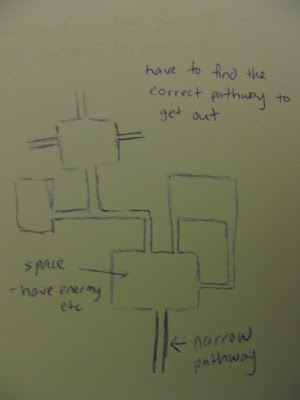 have to find the
correct pathway to
get out
space
- have enermy
etc
narrow
pathway